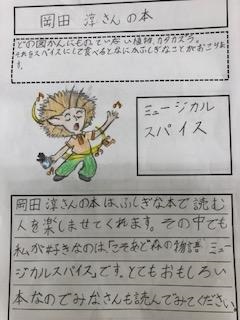 岡田 淳さんの本
どの図かんにものっていない植物、カタカズラ。
それをスパイスにして食べるとなにかふしぎなことがおこりま
す。
ミュージカル
スパイス
岡田淳さんの本は、ふしぎな本で読む
人を楽しませてくれます。その中でも
私が好きなのは「こそあどの森の物語 ミュー
ジカルスパイス」です。とてもおもしろい
本なのでみなさんも読んでみてください。